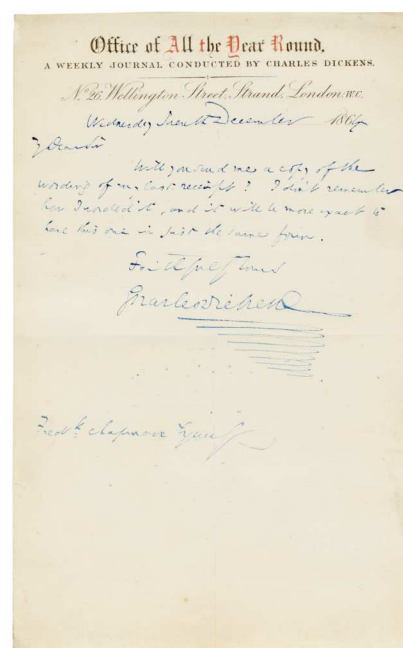 Office of All the Year Round,
A WEEKLY JOURNAL CONDUCTED BY CHARLES DICKENS.
No. 26, Wellington Street, Strand, London. W.C.
Wednesday Seventh December 1864
My Dear Sir
Will you send me a copy of the
wording of my last receipt? I don't remember
how I worded it, and it will be more exact to
have this one in just the same form.
Faithfully Yours
Charles Dickens
Fredk. Chapman Esquire